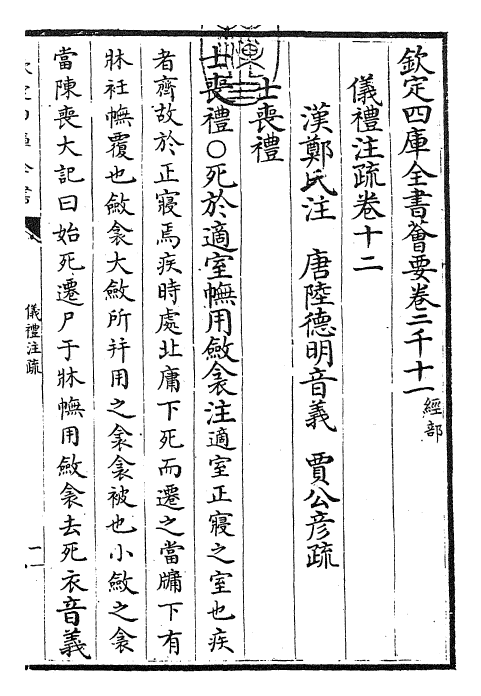 欽定四庫全書薈要卷二千十一經部
儀禮注疏卷十二
漢鄭氏注　唐陸德明音義　賈公彦疏
士喪禮
士喪禮○死於適室幠用斂衾注適室正寢之室也疾
者齊故於正寢焉疾時處北庸下死而遷之當牖下有
牀衽幠覆也斂衾大斂所并用之衾衾被也小斂之衾
當陳喪大記曰始死遷尸于牀幠用斂衾去死衣音義
儀禮注疏